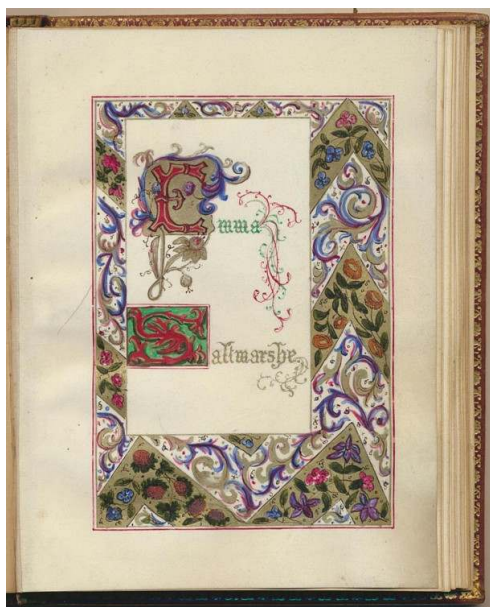 Emma
Saltmarshe